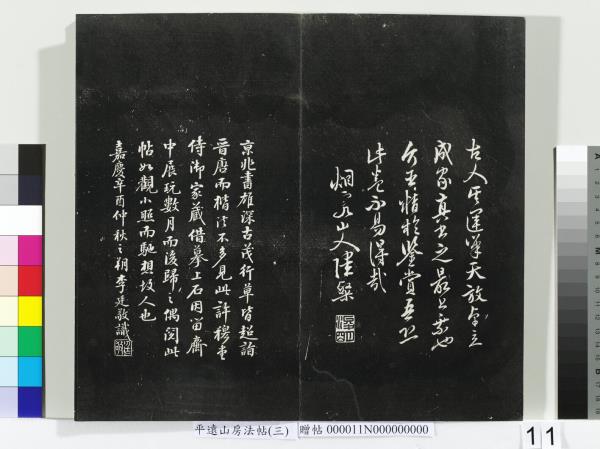 古人其運筆天放
成家真書之最上乘也
鑒賞
此卷不易得哉
烟客山人陸燦
京兆書雄深古茂行草皆超詣
晉唐而楷法不多見此許穆堂
侍御家藏借摹上石因留齋
中展玩數月而後歸之偶閱此
帖如觀小照而馳想故人也
嘉慶辛酉仲秋之朔李廷敬識
平遠山房法帖(三) 贈帖 000011N000000000
11